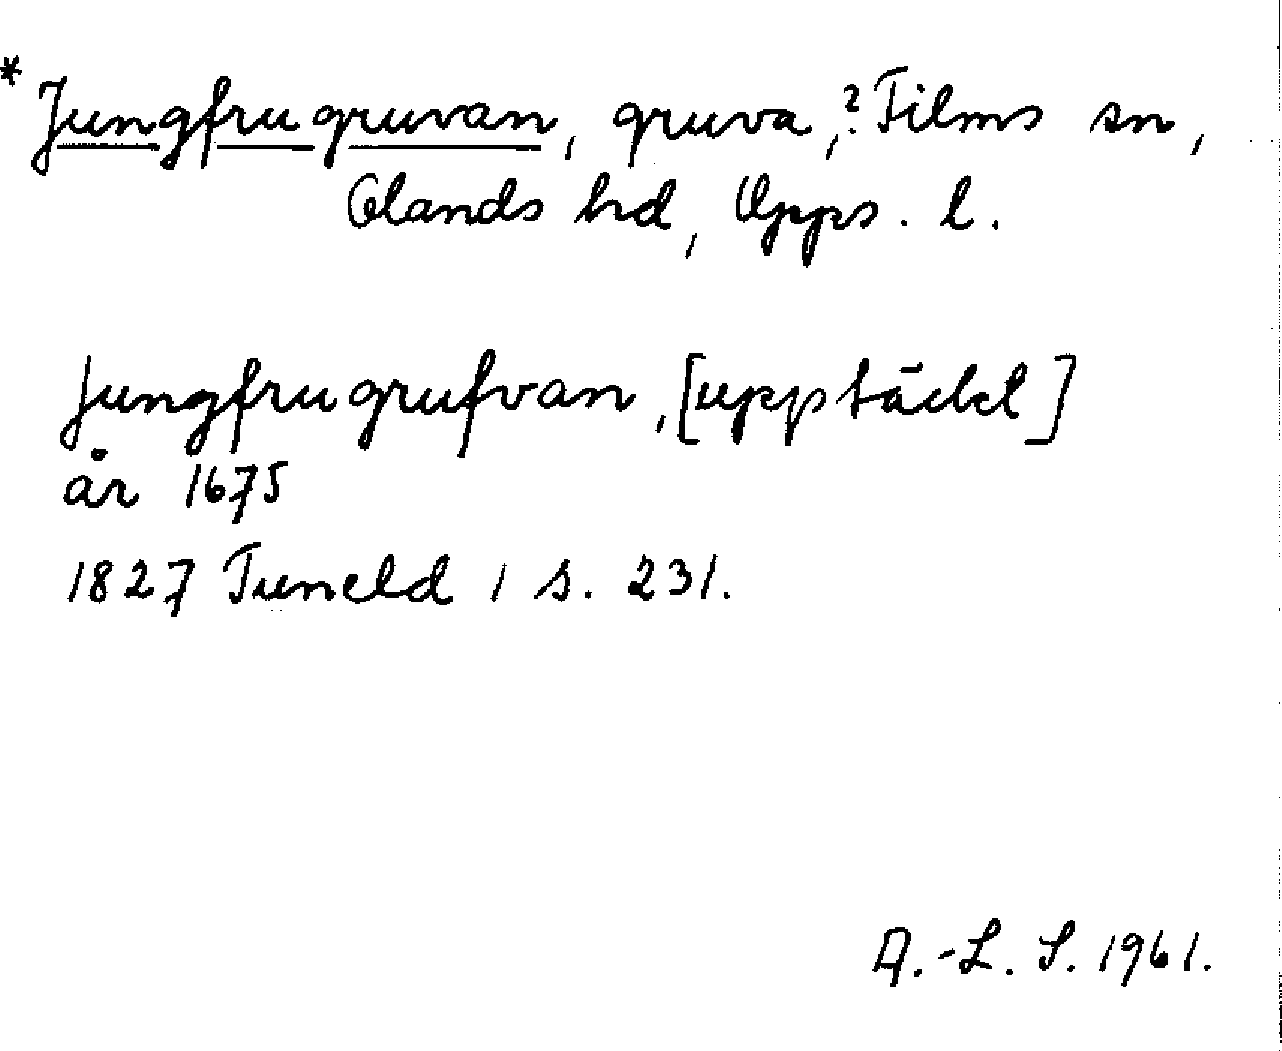 * Jungfrugruvan, gruva, ? Films sn,
Olands hd, Upps. l.
Jungfrugrufvan, [upptäckt]
år 1675
1827 Tuneld 1 s. 231.
A.-L. S. 1961.